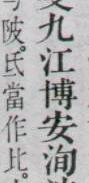 九江博安洵
陂氏當作比